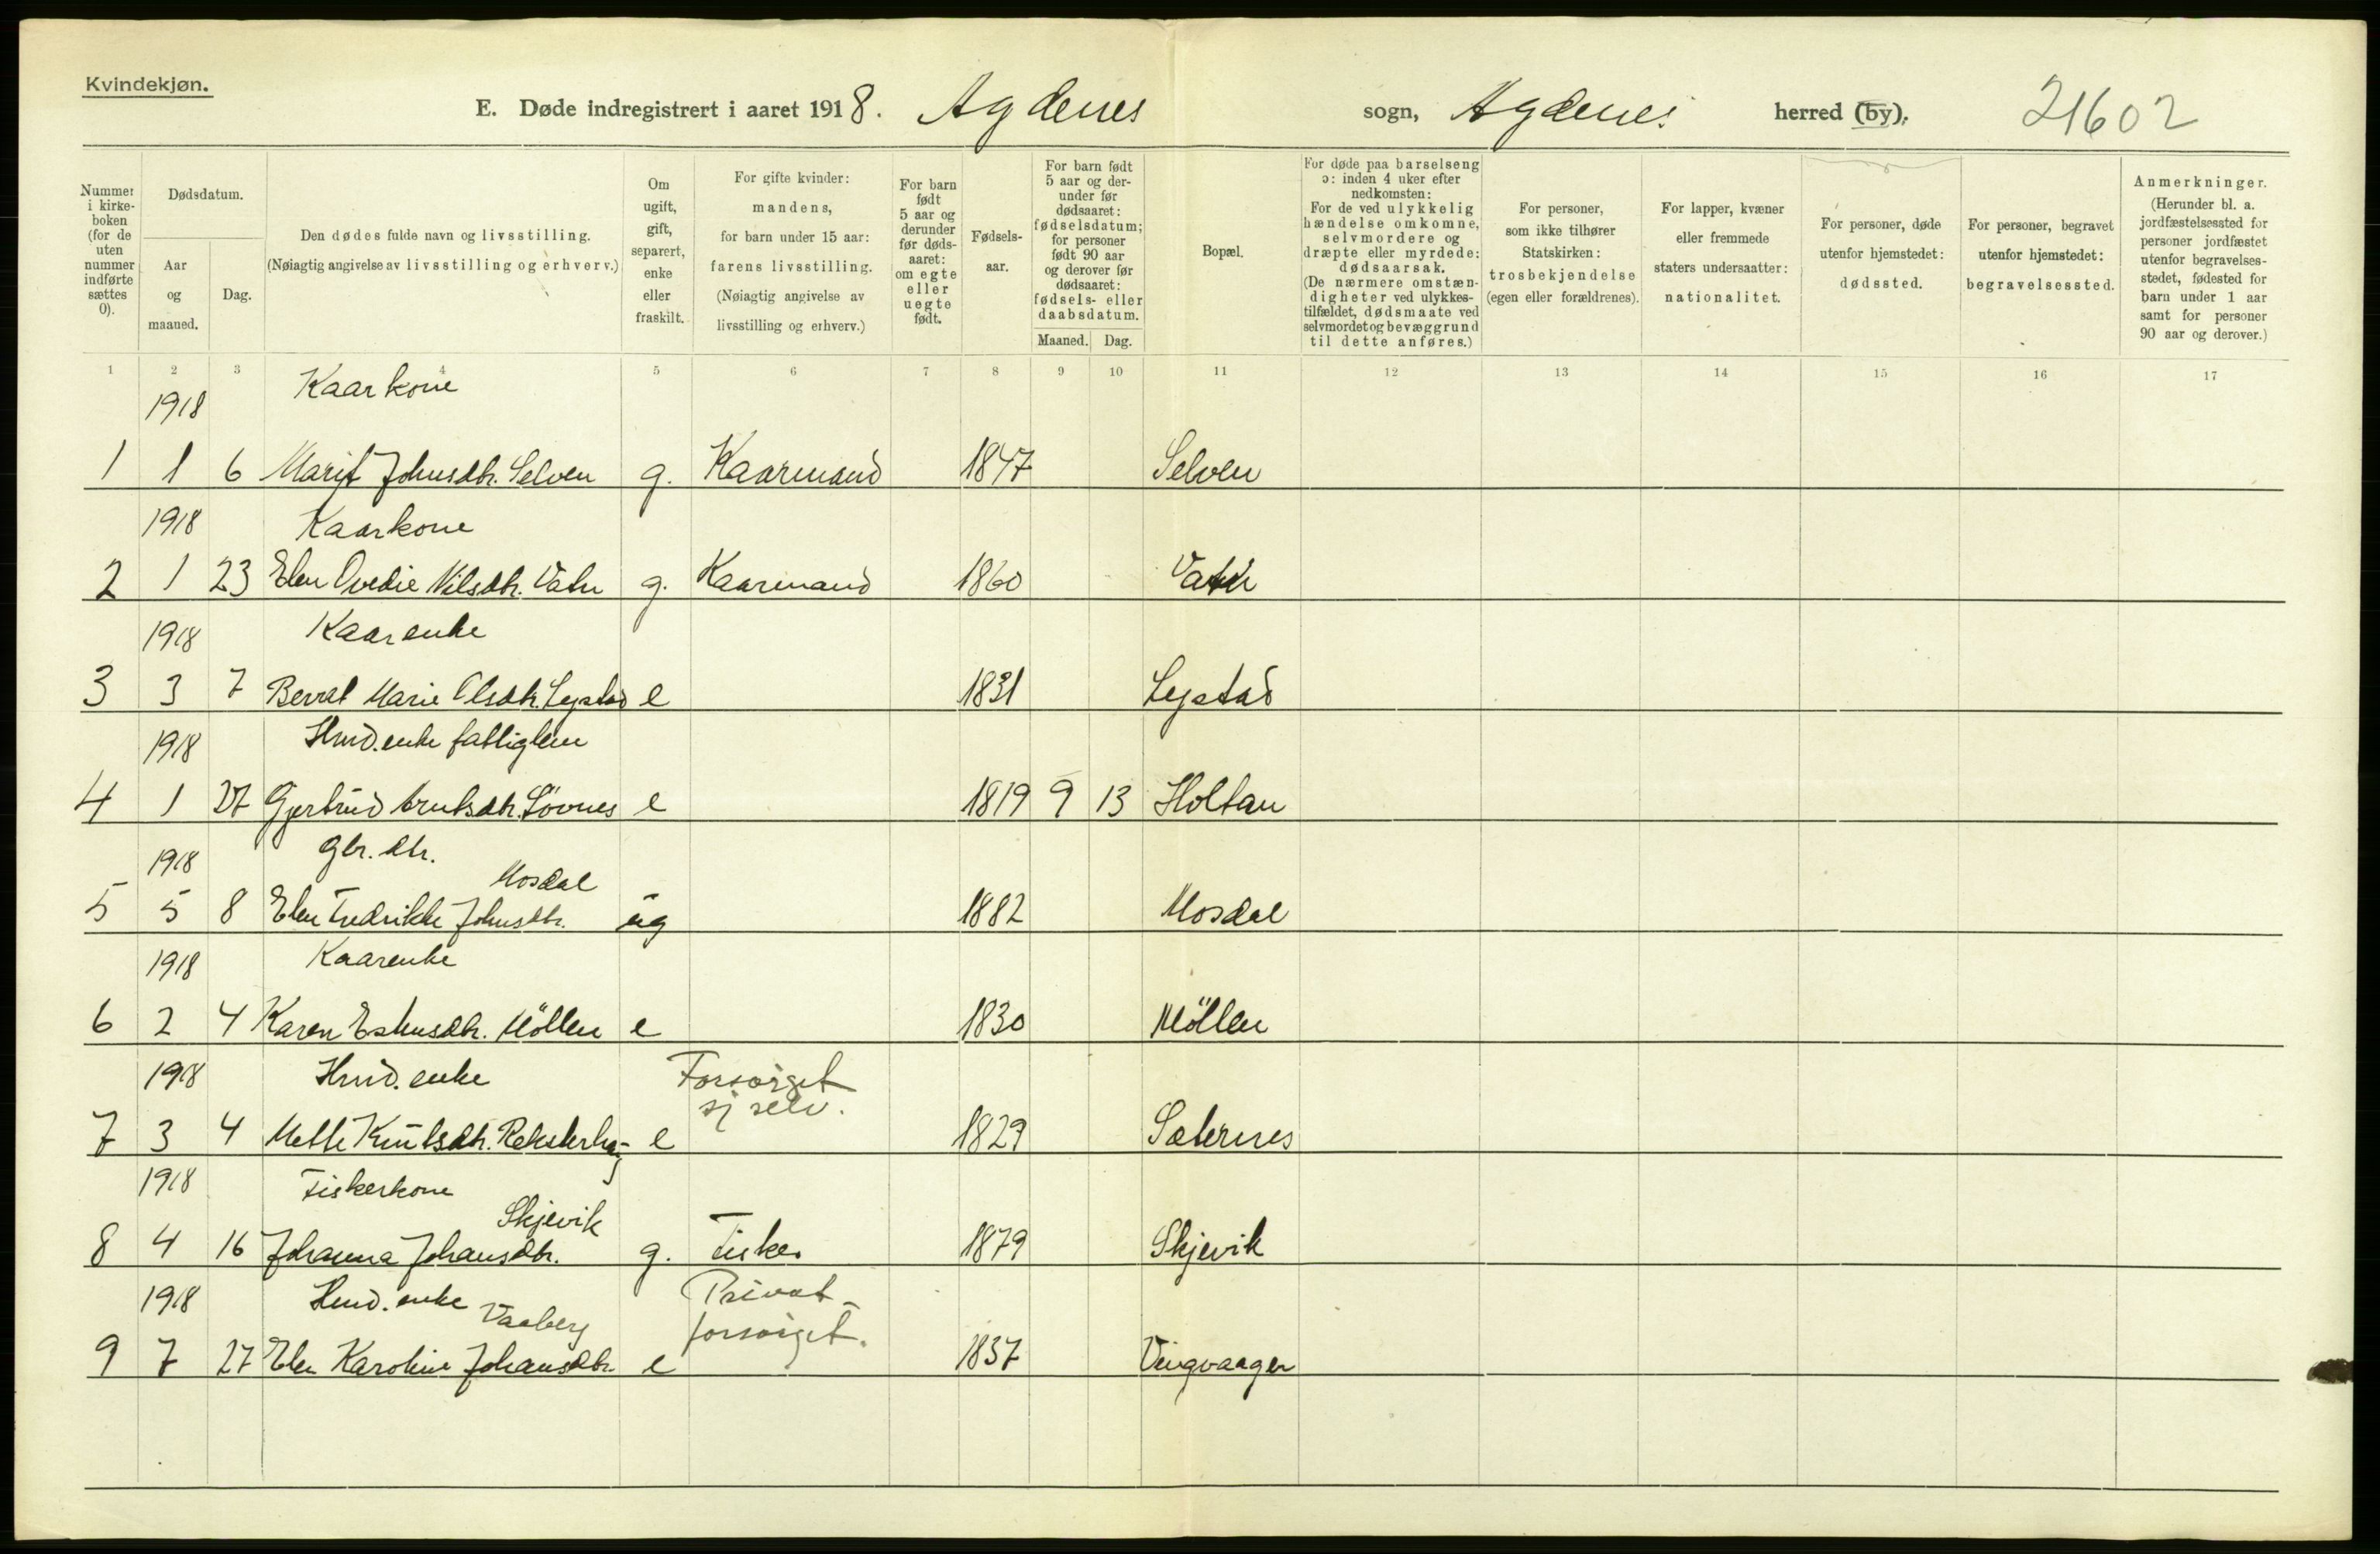 Kvindekjøn.
E. Døde indregistrert i aaret 1918. Agdenes sogn, Agdenes herred (by). 21602
Nummer i kirkeboken (for de uten nummer indførte sættes 0).
Dødsdatum.
Aar og maaned.
Dag.
Den dødes fulde navn og livsstilling.
(Nøiagtig angivelse av livsstilling og erhverv.)
Om ugift, gift, separert, enke eller fraskilt.
For gifte kvinder: mandens, for barn under 15 aar: farens livsstilling. (Nøiagtig angivelse av livsstilling og erhverv.)
For barn født 5 aar og derunder før dødsaaret: om egte eller uegte født.
Fødselsaar.
For barn født 5 aar og derunder før dødsaaret: fødselsdatum; for personer født 90 aar og derover før dødsaaret: fødsels- eller daabsdatum.
Maaned. Dag.
Bopæl.
For døde paa barselseng ɔ: inden 4 uker efter nedkomsten: For de ved ulykkelig hændelse omkomne, selvmordere og dræpte eller myrdede: dødsaarsak. (De nærmere omstændigheter ved ulykkestilfældet, dødsmaate ved selvmordet og bevæggrund til dette anføres.)
For personer, som ikke tilhører Statskirken: trosbekjendelse (egen eller forældrenes).
For lapper, kvæner eller fremmede staters undersaatter: nationalitet.
For personer, døde utenfor hjemstedet: dødssted.
For personer, begravet utenfor hjemstedet: begravelsessted.
Anmerkninger. (Herunder bl. a. jordfæstelsessted for personer jordfæstet utenfor begravelsesstedet, fødested for barn under 1 aar samt for personer 90 aar og derover.)
1 2 3 4 5 6 7 8 9 10 11 12 13 14 15 16 17
1918 Kaarkone
1 1 6 Marit Johnsdtr. Selven g. Kaarmand 1847 Selven
1918 Kaarkone
2 1 23 Elen Ovedie Nilsdtr. Vatn g. Kaarmand 1860 Vatn
1918 Kaarenke
3 3 7 Beret Marie Olsdtr. Lystad e 1831 Lystad
1918 Hmd.enke fattiglem
4 1 27 Gjertrud Arntsdtr. Løvnes e 1819 9 13 Holtan
1918 Gbr. dtr.
Mosdal
5 5 8 Elen Fredrikke Johnsdtr. ug 1882 Mosdal
1918 Kaarenke
6 2 4 Karen Estensdtr. Möllen e 1830 Möllen
1918 Hmd. enke Forsörget
sj selv.
7 3 4 Mette Knutsdtr. Reksterhag e 1829 Sæternes
1918 Fiskerkone
Skjevik
8 4 16 Johanna Johansdtr. g. Fisker 1879 Skjevik
1918 Hmd. enke Privat
Vaaberg forsörget.
9 7 27 Elen Karoline Johansdtr. e 1837 Vingvaagen